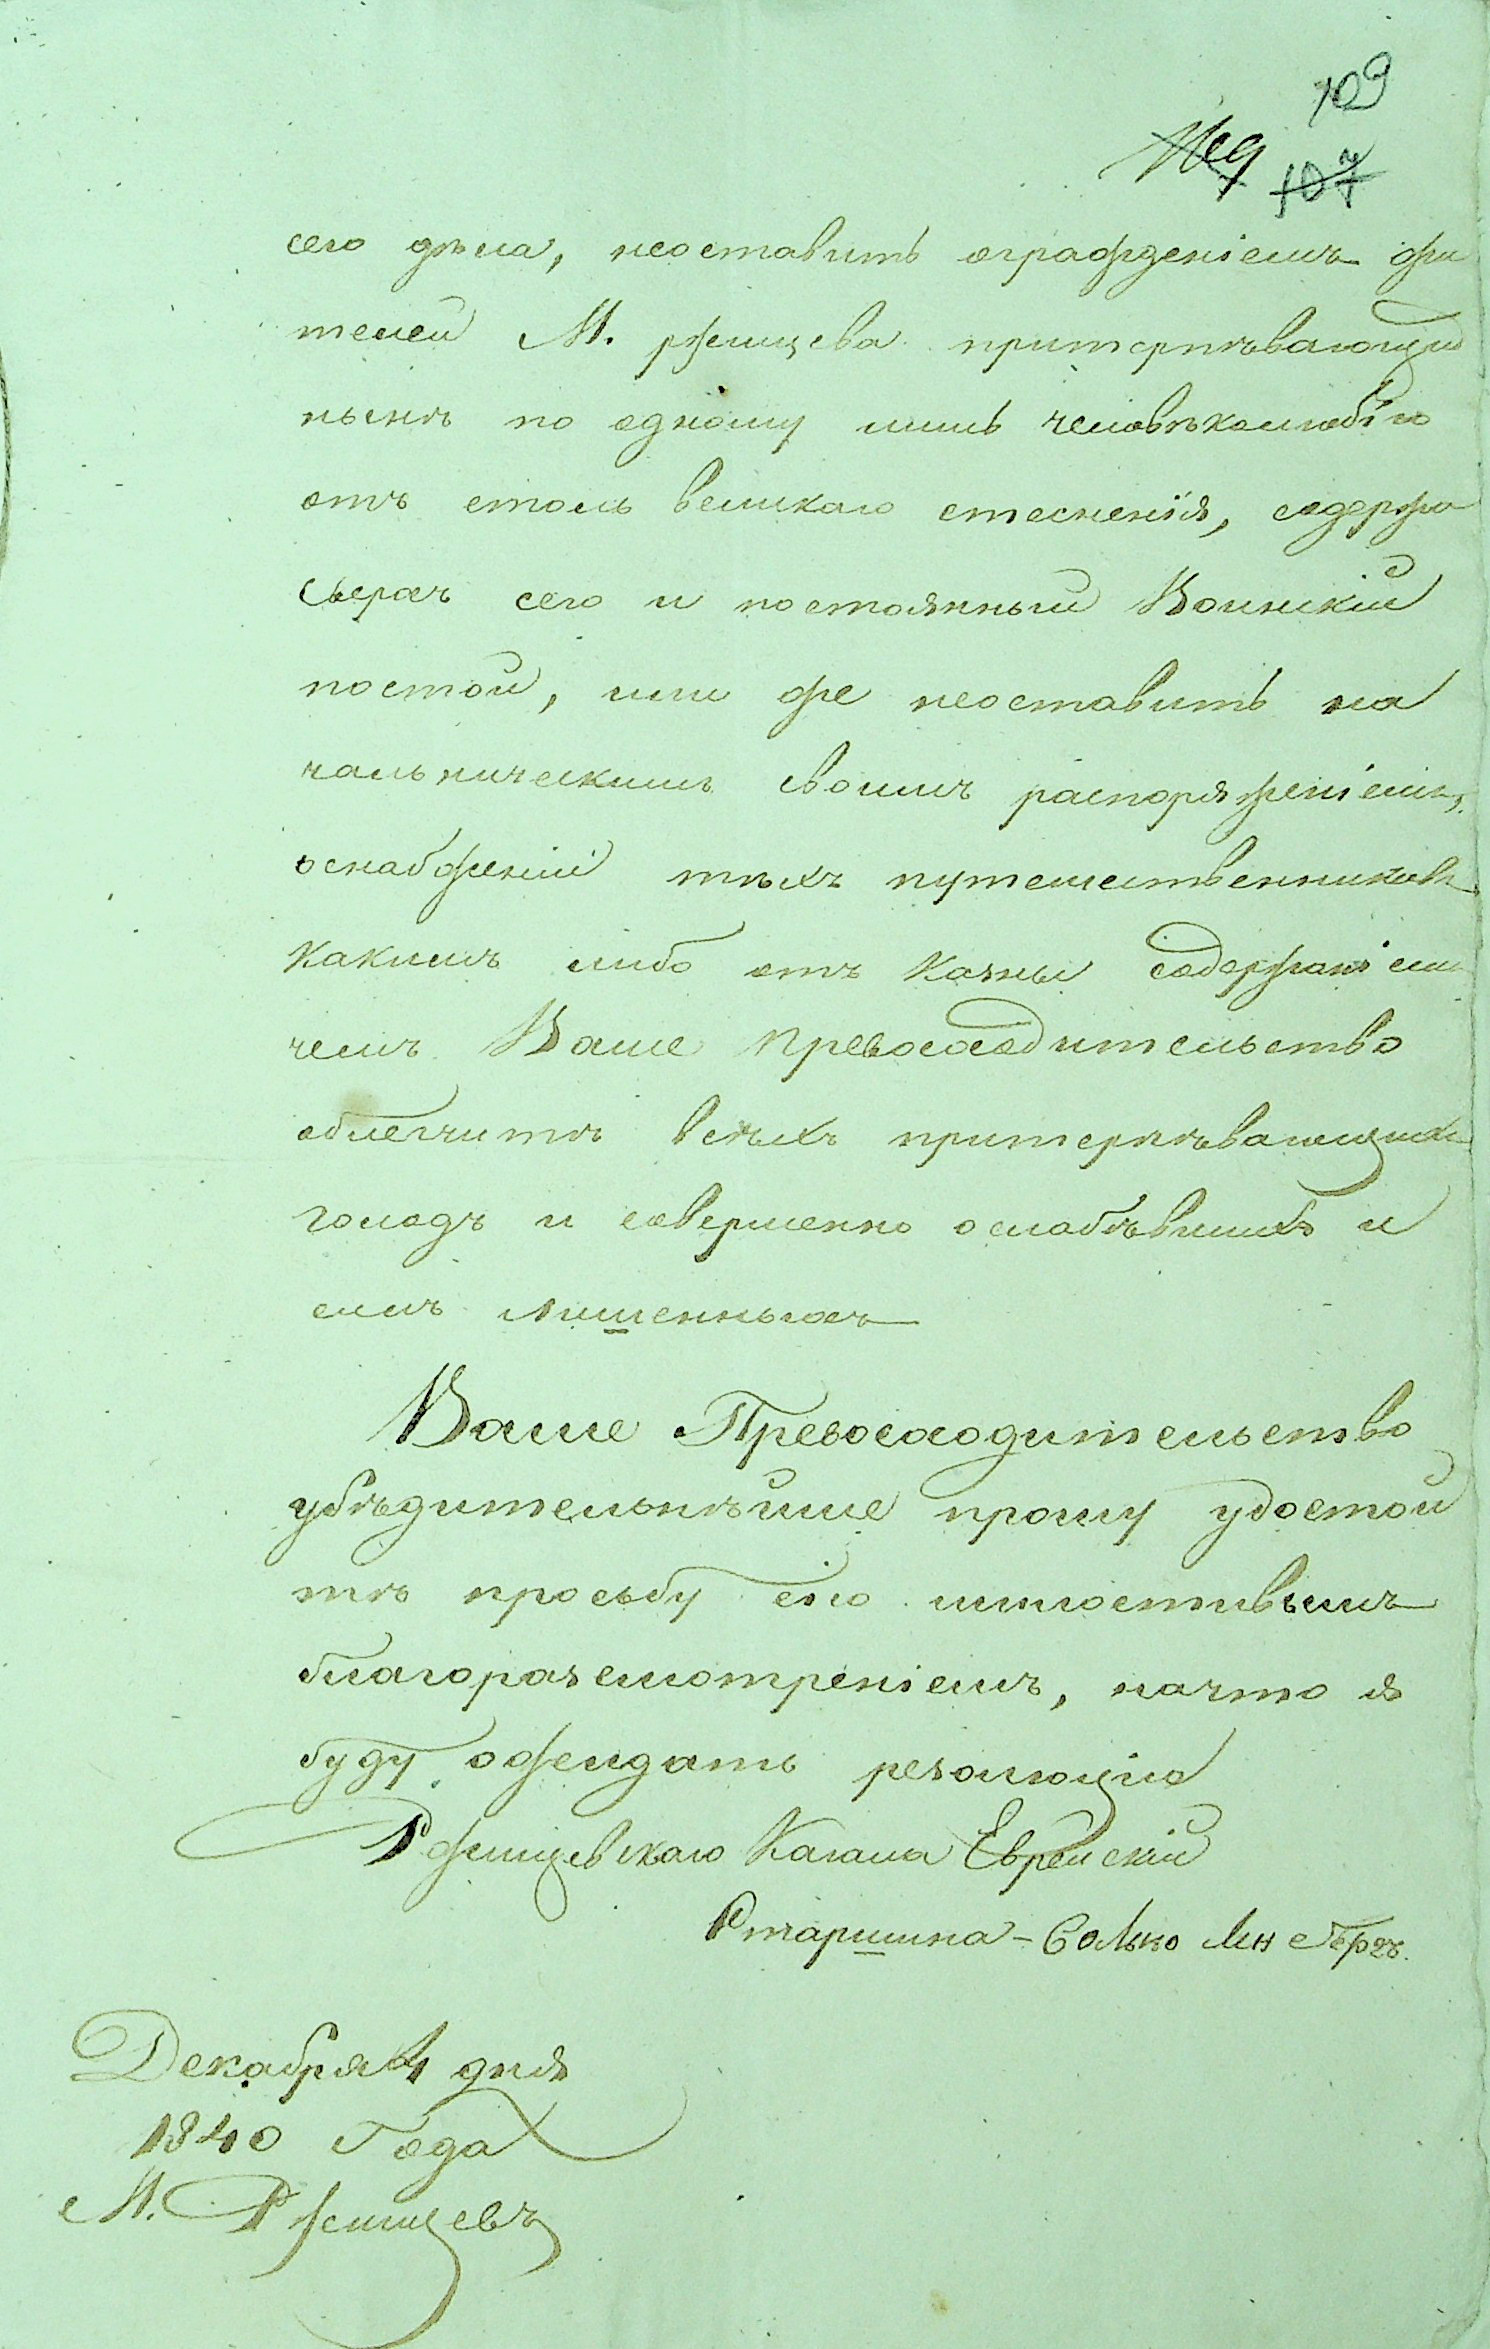 109
107
сего дѣла, неоставить огражденіемъ жи
телей М. ржищева притерпѣвающи
нынѣ по одному лишь человѣколюбію
отъ столь великаго стесненія, содержа
сверхъ сего и постоянный Воинскій
постой, или же неоставить на
чальническимъ своимъ распоряженіемъ,
оснабженіи тѣхъ путешественниковъ
какимъ либо отъ казны содержаніемъ
чемъ Ваше Превосходительство
облегчитъ всѣхъ притерпѣвающихъ
голодъ и совершенно ослабѣвшихъ и
симъ лишенныхъ
Ваше Превосходительство
убѣдительнѣйше прошу удостои
тъ просьбу сію милостивымъ
благоразсмотреніемъ, начто я
буду ожидать резолюціи
Ржищевскаго Кагала Еврейскій
Старшина –
Декабря 4 дня
1840 Года
М. Ржищевъ